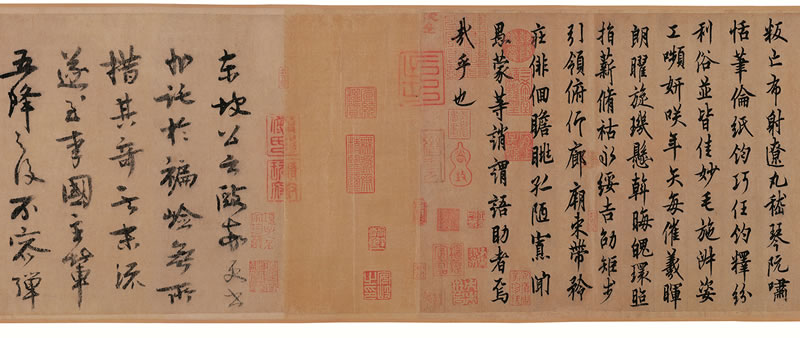 叛亡布射遼丸嵇琴阮嘯
恬筆倫紙鈞巧任鈞釋紛
利俗並皆佳妙毛施淑姿
工嚬妍咲年矢每催羲暉
朗曜旋璣懸斡晦魄環照
指薪脩祜永綏吉劭矩步
引領俯仰廊廟束帶矜
莊俳佪瞻眺孤陋寡聞
愚蒙等誚謂語助者焉
哉乎也
東坡公云歐
於褊無所
措其奇末流
遂至李國主輩
五降之後不容彈